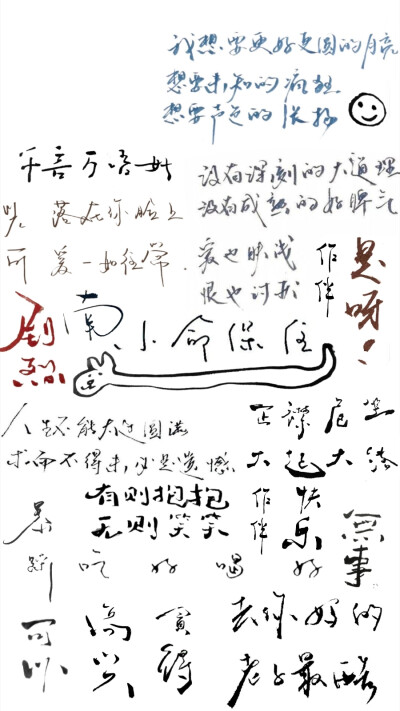 我想要更好更圆的月亮
想要未知的疯狂
想要声色的张扬
千言万语
没有深刻的大道理
没有成熟的好脾气
爱也勝成
恨也讨我
作伴
光落在你脸上
可爱一如往常
是呀！
剧烈
南
小命保住
人生不能太过圆满
求而不得未必是遗憾
正襟危坐
大起大落
有则抱抱
无则笑笑
作伴
快乐
暴躁
吃好喝好
冥事
可以
高兴
买得
去你妈的
老子最酷